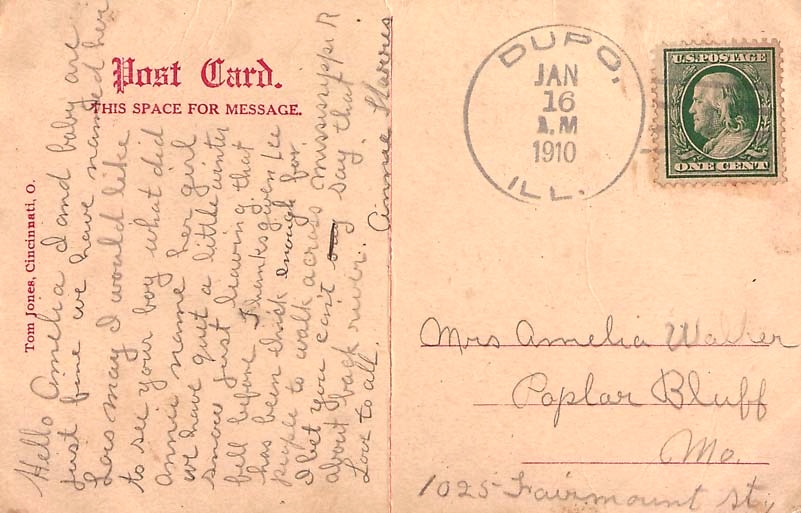 Post Card.
THIS SPACE FOR MESSAGE.
Tom Jones, Cincinnati, O.
Hello Amelia I and baby are
just fine we have named her
Lois may I would like
to see your boy what did
Annie name her girl
we have quit a little winter
snow just leaving that
fell before Thanksgiven Ice
has been thick enough for
people to walk across Mississippi R
I bet you can't say that
about back river.
Love to all. Annie
DUPO,
JAN
16
A.M
1910
ILL.
U.S. POSTAGE
ONE CENT
Mrs Amelia Walker
Poplar Bluff
Mo.
1025 Fairmount st,